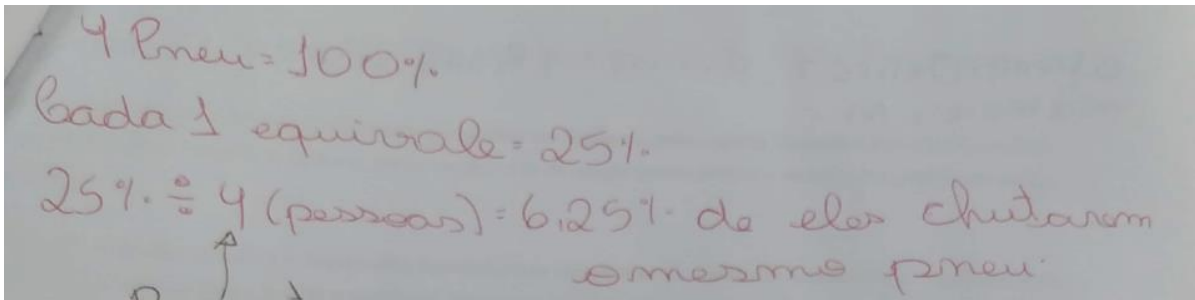 4 Pneu = 100%.
Cada 1 equivale = 25%.
25% ÷ 4 (pessoas) = 6,25% de eles chutarem
o mesmo pneu.